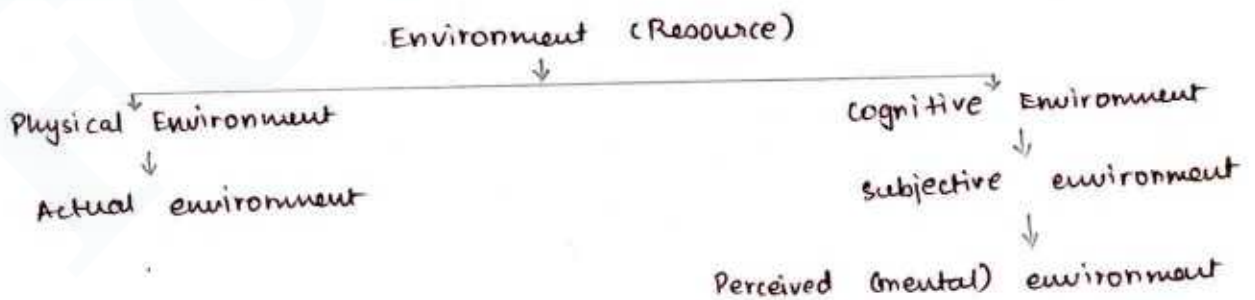 Environment (Resource)
Physical Environment
Cognitive Environment
Actual environment
subjective environment
Perceived (mental) environment